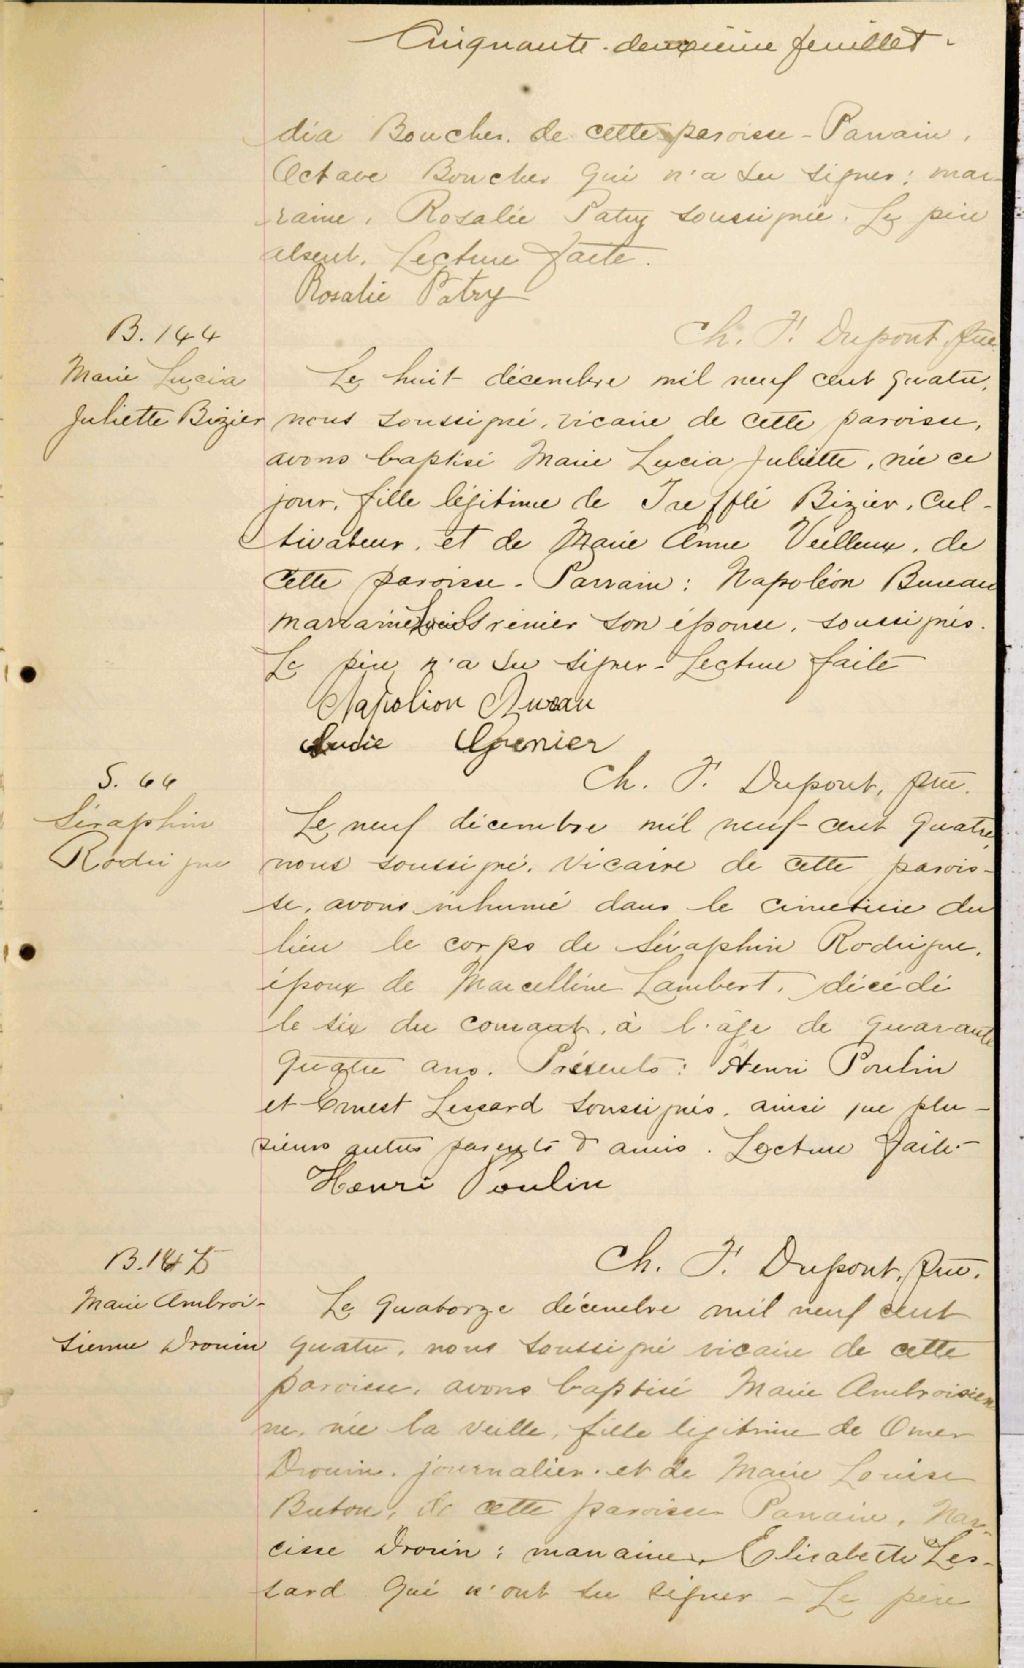 Cinquante-deuxième feuillet.
dia Boucher, de cette paroisse - Parrain,
Octave Boucher qui n'a su signer; mar-
raine, Rosalie Patry soussignée. Le père
absent. Lecture faite.
Rosalie Patry
Ch. F. Dupont, ptre
B. 144
Marie Lucia
Juliette Bizier
Le huit décembre mil neuf cent quatre,
nous soussigné, vicaire de cette paroisse,
avons baptisé Marie Lucia Juliette, née ce
jour, fille légitime de Trefflé Bizier, cul-
tivateur, et de Marie Anne Veilleux, de
cette paroisse - Parrain: Napoléon Bureau
marraine Grenier son épouse, soussignés.
Le père n'a su signer - Lecture faite
Napolion Bureau
Grenier
Ch. F. Dupont, ptre.
S. 66
Séraphin
Rodrigue
Le neuf décembre mil neuf-cent quatre,
nous soussigné, vicaire de cette parois-
se, avons inhumé dans le cimetière du
lieu le corps de Séraphin Rodrigue,
époux de Marcelline Lambert, décédé
le six du courant, à l'âge de quarante
quatre ans. Présents: Henri Poulin
et Ernest Lessard soussignés, ainsi que plu-
sieurs autres parents & amis. Lecture faite.
Henri Poulin
Ch. F. Dupont, ptre.
B. 145
Marie Ambroi-
sienne Drouin
Le quatorze décembre mil neuf cent
quatre, nous soussigné vicaire de cette
paroisse, avons baptisé Marie Ambroisien
ne, née la veille, fille légitime de Omer
Drouin, journalier, et de Marie Louise
Buton, de cette paroisse Parrain, Nar-
cisse Drouin; marraine, Elisabeth Les-
sard qui n'ont su signer - Le père